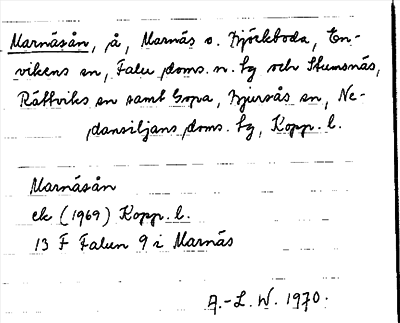 Marnäsån, å, Marnäs o. Björkboda, En-
vikens sn, Falu doms. n. tg och Stumsnäs,
Rättviks sn samt Sopa, Bjursås sn, Ne-
dansiljans doms. tg, Kopp. l.
Marnäsån
ek (1969) Kopp. l.
13 F Falun 9 i Marnäs
A.-L. W. 1970.